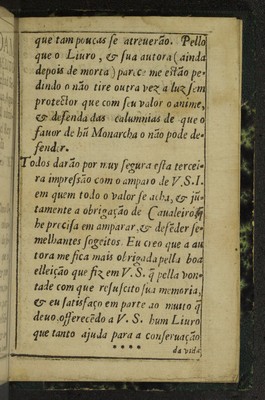 que tam poucas se atreuerão. Pello
que o Liuro, & sua autora (ainda
depois de morta) parece me estão pe-
dindo o não tire outra vez a luz sem
protector que com seu valor o anime,
& defenda das calumnias de que o
fauor de hũ Monarcha o não pode de-
fender.
Todos darão por muy segura esta tercei-
ra impressão com o amparo de V.S.I.
em quem todo o valor se acha, & jũ-
tamente a obrigação de Caualeiro q̃
he precisa em amparar, & defẽder se-
melhantes sogeitos. Eu creo que a au
tora me fica mais obrigada pella boa
elleição que fiz em V.S. q̃ pella von-
tade com que resuscito sua memoria,
& eu satisfaço em parte ao muito q̃
deuo, offerecẽdo a V.S. hum Liuro
que tanto ajuda para a conseruação
****
da vida